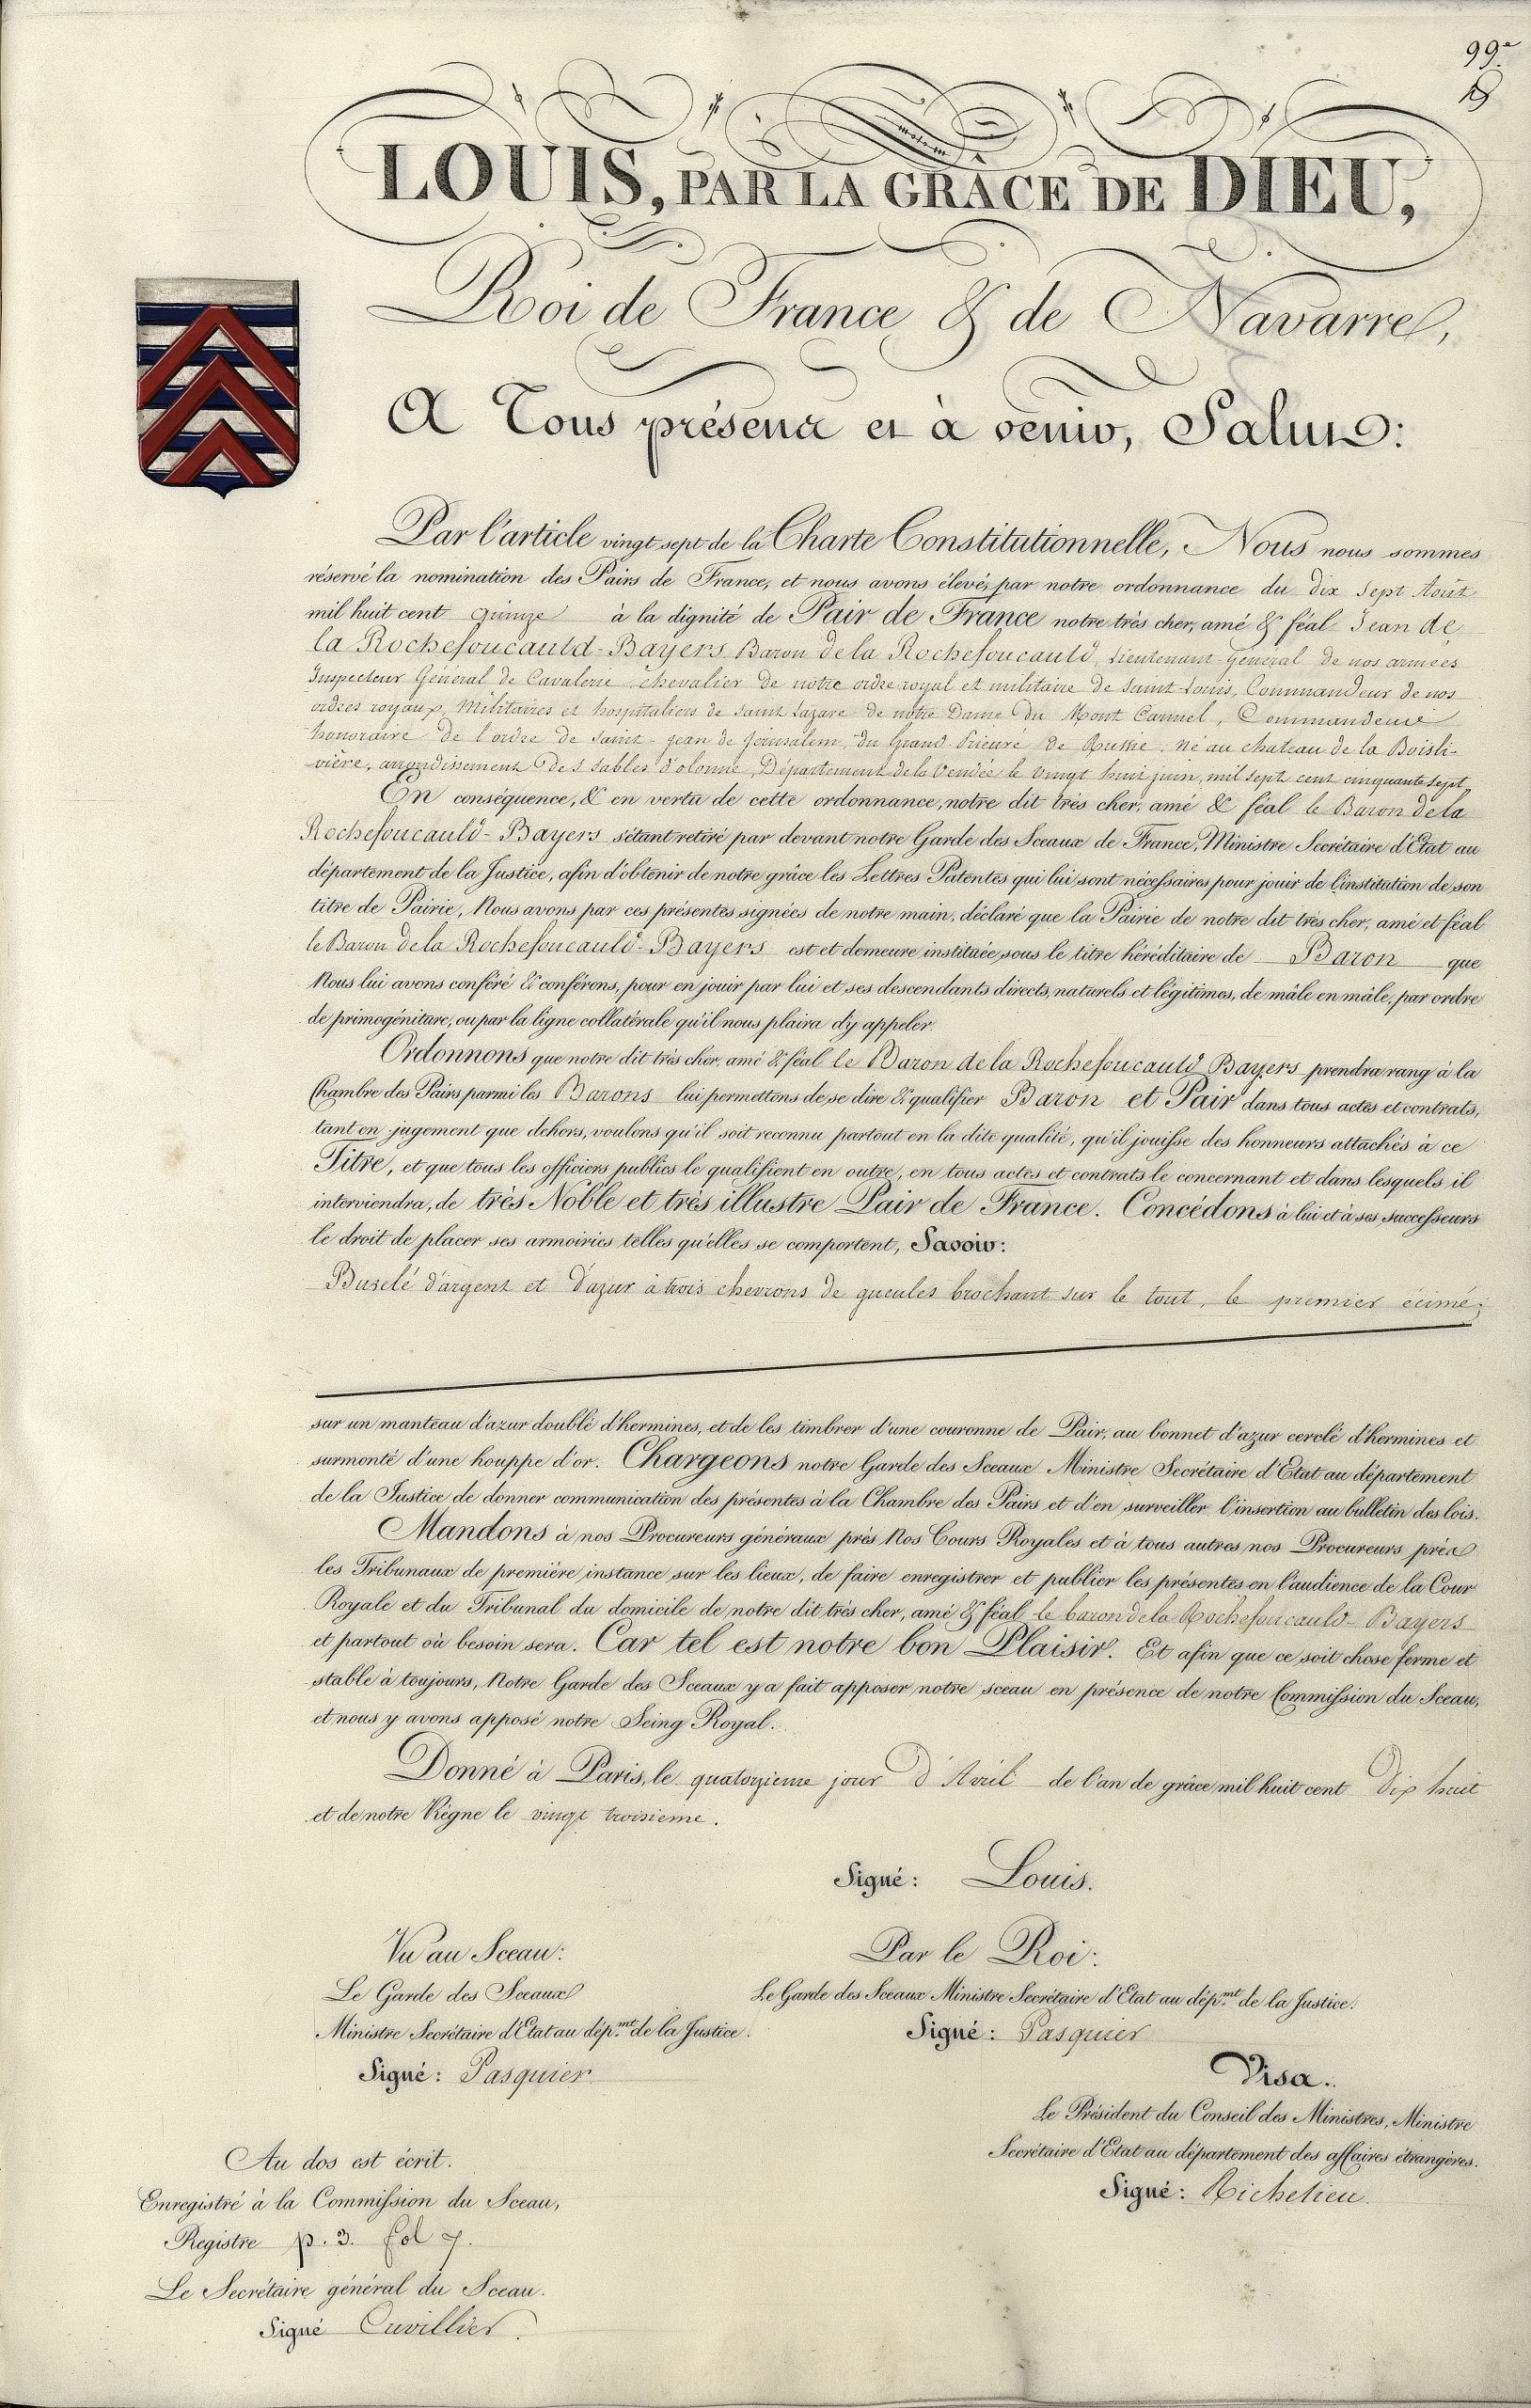 99.e
LOUIS, PAR LA GRÂCE DE DIEU,
Roi de France & de Navarre,
A Tous présens et à venir, Salut:
Par l'article vingt sept de la Charte Constitutionnelle, Nous nous sommes
réservé la nomination des Pairs de France, et nous avons élevé, par notre ordonnance du dix sept Août
mil huit cent quinze à la dignité de Pair de France notre très cher, amé & féal Jean de
la Rochefoucauld-Bayers Baron de la Rochefoucauld, Lieutenant-Général de nos armées
Inspecteur Général de Cavalerie chevalier de notre ordre royal et militaire de Saint-Louis, Commandeur de nos
ordres royaux, Militaires et hospitaliers de Saint Lazare de notre Dame du Mont Carmel, Commandeur
honoraire de l'ordre de Saint-jean de Jérusalem, du Grand Prieuré de Russie. né au chateau de la Boisli-
vière, arrondissement des Sables d'olonne, Département de la Vendée le vingt huit juin, mil sept cent cinquante sept,
En conséquence, & en vertu de cette ordonnance, notre dit très cher, amé & féal le Baron de la
Rochefoucauld-Bayers s'étant retiré par devant notre Garde des Sceaux de France, Ministre Secrétaire d'Etat au
département de la Justice, afin d'obtenir de notre grâce les Lettres Patentes qui lui sont nécessaires pour jouir de l'institution de son
titre de Pairie, Nous avons par ces présentes signées de notre main, déclaré que la Pairie de notre dit très cher, amé et féal
le Baron de la Rochefoucauld-Bayers est et demeure instituée sous le titre héréditaire de Baron que
Nous lui avons conféré & conférons, pour en jouir par lui et ses descendants directs, naturels et légitimes, de mâle en mâle, par ordre
de primogéniture, ou par la ligne collatérale qu'il nous plaira d'y appeler.
Ordonnons que notre dit très cher, amé & féal le Baron de la Rochefoucauld Bayers prendra rang à la
Chambre des Pairs parmi les Barons lui permettons de se dire & qualifier Baron et Pair dans tous actes et contrats,
tant en jugement que dehors, voulons qu'il soit reconnu partout en la dite qualité, qu'il jouisse des honneurs attachés à ce
Titre, et que tous les officiers publics le qualifient en outre, en tous actes et contrats le concernant et dans lesquels il
interviendra, de très Noble et très illustre Pair de France. Concédons à lui et à ses successeurs
le droit de placer ses armoiries telles qu'elles se comportent, Savoir:
Burelé d'argent et d'azur à trois chevrons de gueules brochant sur le tout, le premier écimé;
sur un manteau d'azur doublé d'hermines, et de les timbrer d'une couronne de Pair, au bonnet d'azur cerclé d'hermines et
surmonté d'une houppe d'or. Chargeons notre Garde des Sceaux Ministre Secrétaire d'Etat au département
de la Justice de donner communication des présentes à la Chambre des Pairs et d'en surveiller l'insertion au bulletin des lois.
Mandons à nos Procureurs généraux près Nos Cours Royales et à tous autres nos Procureurs près
les Tribunaux de première instance sur les lieux, de faire enregistrer et publier les présentes en l'audience de la Cour
Royale et du Tribunal du domicile de notre dit très cher, amé & féal le baron de la Rochefoucauld-Bayers
et partout où besoin sera. Car tel est notre bon Plaisir. Et afin que ce soit chose ferme et
stable à toujours, Notre Garde des Sceaux y a fait apposer notre sceau en présence de notre Commission du Sceau,
et nous y avons apposé notre Seing Royal.
Donné à Paris, le quatorzieme jour d'Avril de l'an de grâce mil huit cent dix huit
et de notre Règne le vingt troisieme.
Signé: Louis.
Vu au Sceau:
Le Garde des Sceaux
Ministre Secrétaire d'Etat au dép.mt de la Justice.
Signé: Pasquier
Par le Roi:
Le Garde des Sceaux Ministre Secrétaire d'Etat au dép.mt de la Justice.
Signé: Pasquier
Visa.
Le Président du Conseil des Ministres, Ministre
Secrétaire d'Etat au département des affaires étrangères.
Signé: Richelieu.
Au dos est écrit.
Enregistré à la Commission du Sceau,
Registre p. 3. fol 7.
Le Secrétaire général du Sceau.
Signé Cuvillier.